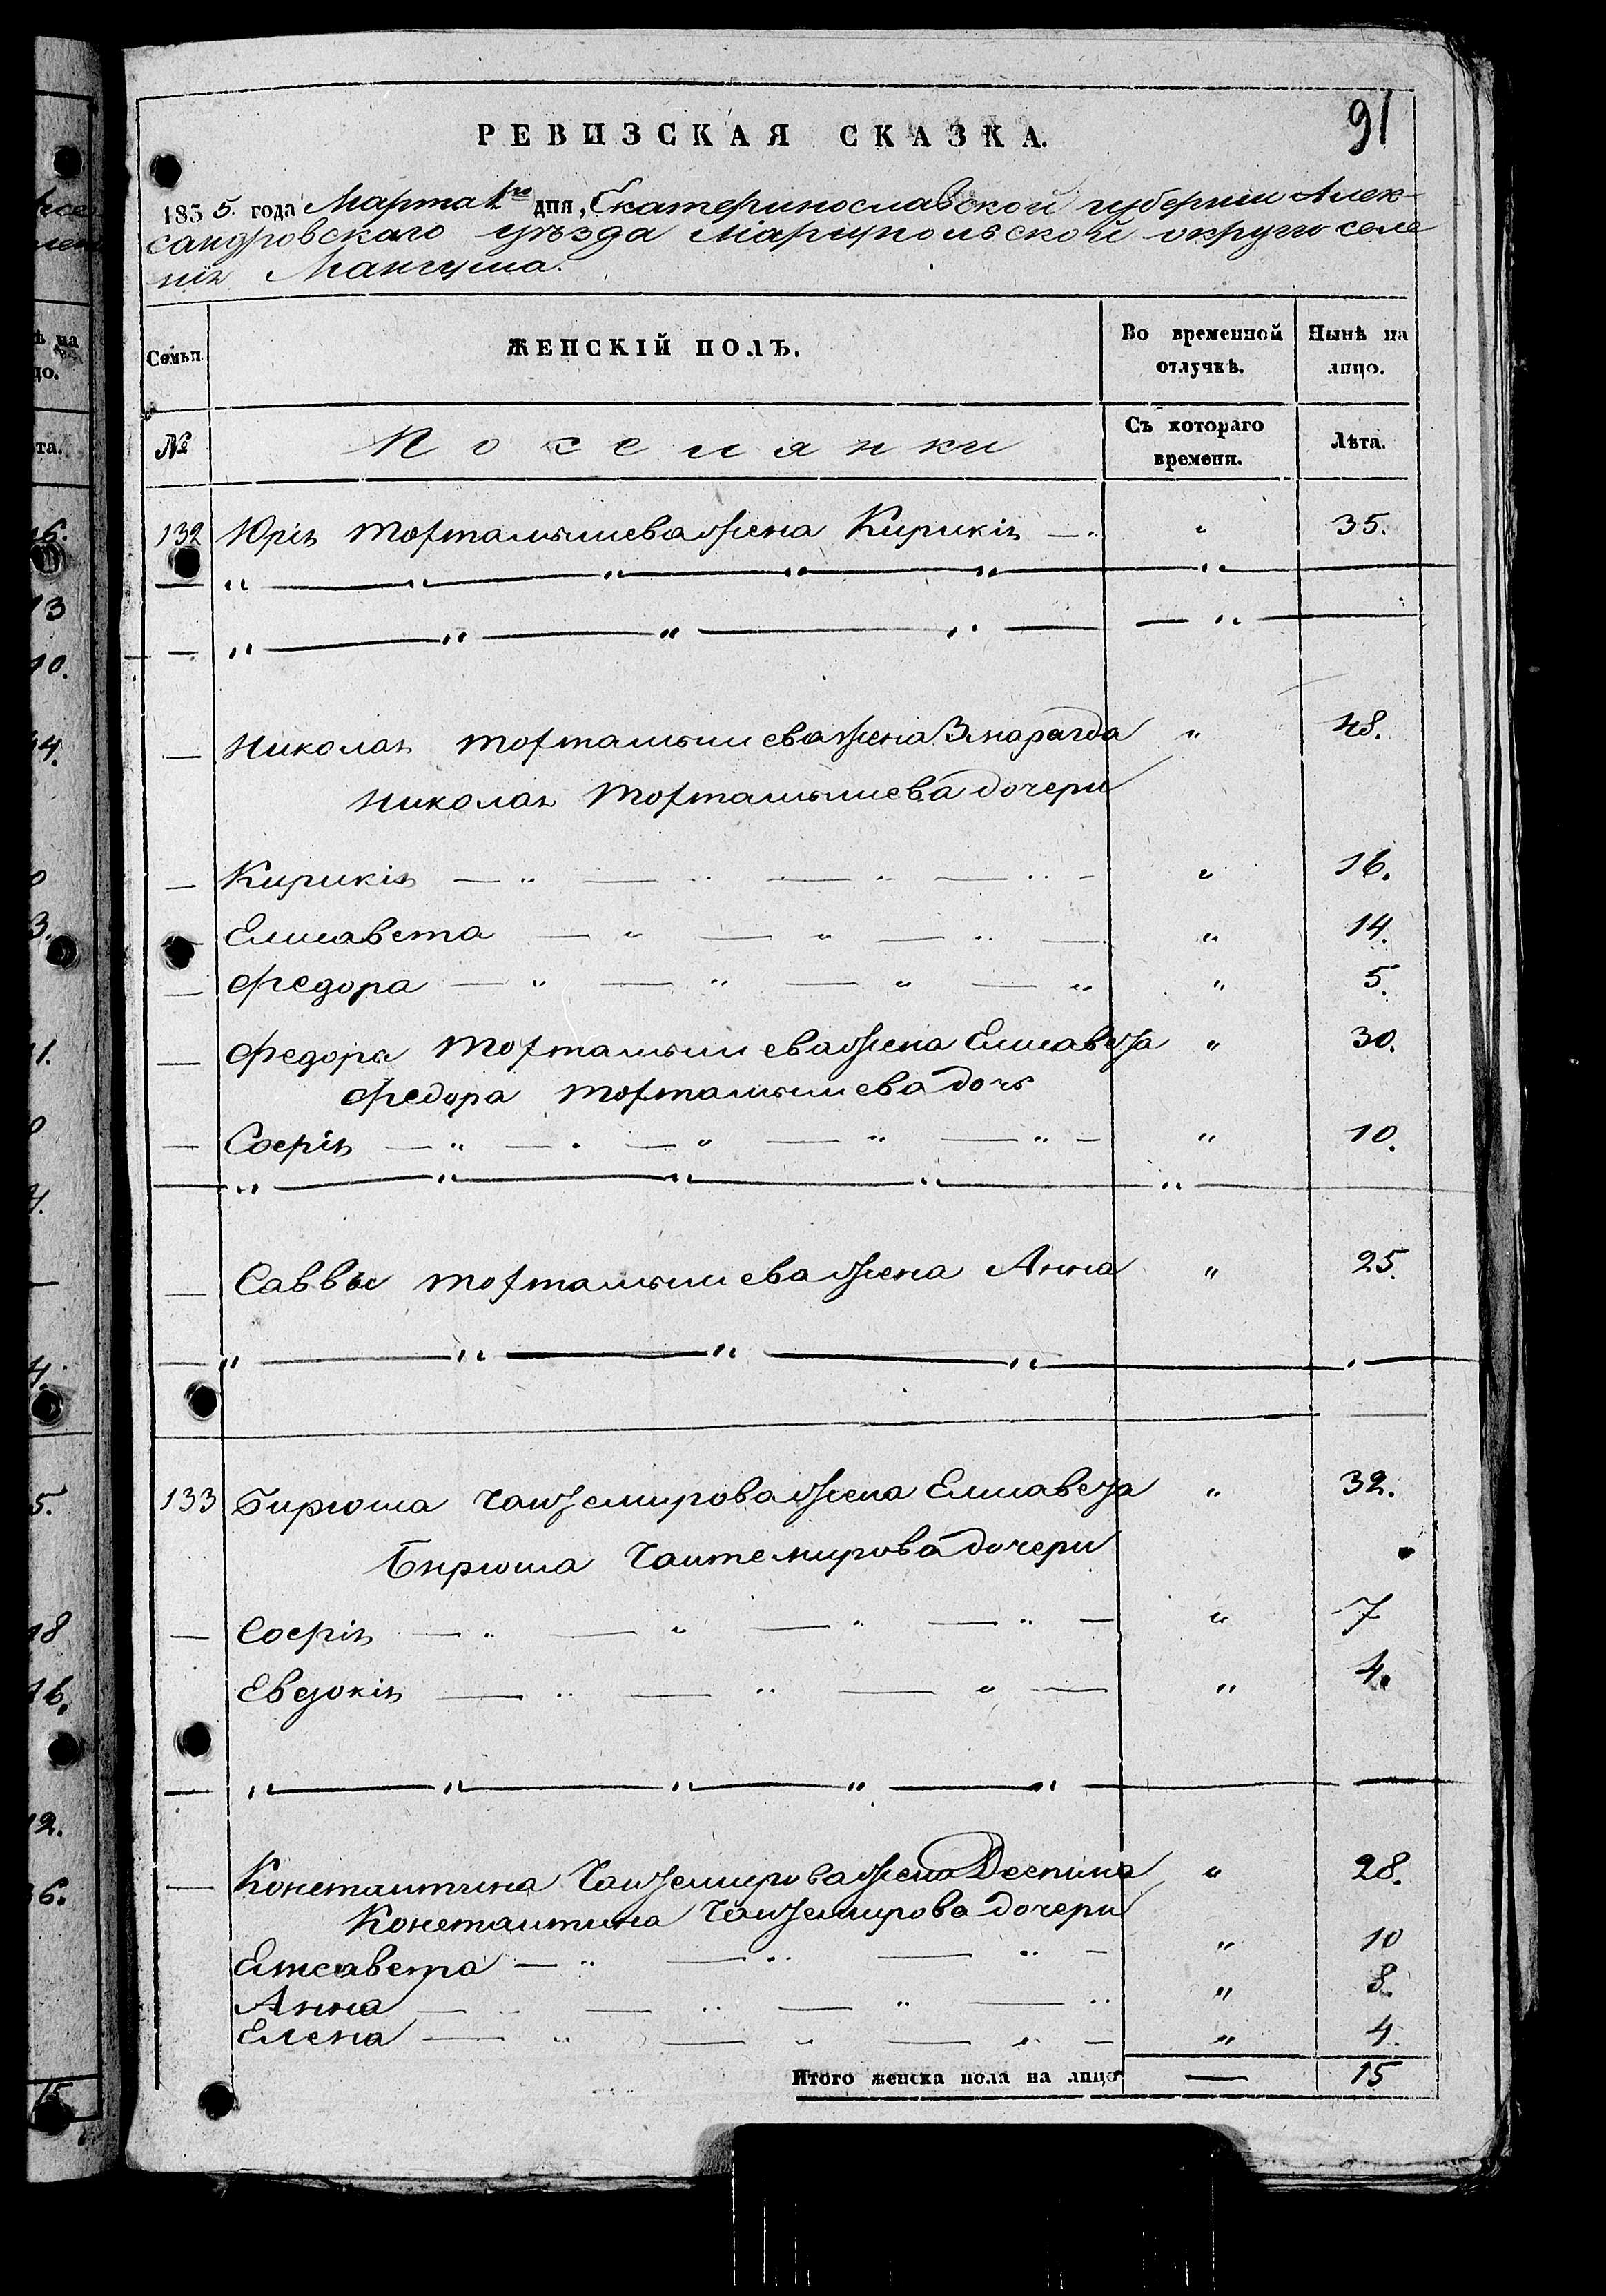 91
РЕВИЗСКАЯ СКАЗКА.
1835. года Марта 1го дня, Екатеринославской губернии Алек-
сандровскаго уѣзда Маріупольской округи селе
нія Мангуша.
Семьи. ЖЕНСКІЙ ПОЛЪ. Во временной отлучкѣ. Нынѣ на лицо.
№ Поселянки Съ котораго времени. Лѣта.
132 Юрія Тохтамышева жена Кирикія — „ „ 35.
„ — „ — „ — „ — „ — „
— „ — „ — „ — „ — „ —
— Николая Тохтамышева жена Змарагда „ 48.
Николая Тохтамышева дочери
— Кирикія — „ — „ — „ — „ — „ 16.
— Елисавета — „ — „ — „ — „ 14.
— Федора — „ — „ — „ — „ „ 5.
— Федора Тохтамышева жена Елисавета „ 30.
Федора Тохтамышева дочь
— Софія — „ — „ — „ — „ — „ — „ 10.
— „ — „ — „ — „ — „ —
— Саввы Тохтамышева жена Анна „ 25.
— „ — „ — „ — „ — „ —
133 Бирюша Чантемирова жена Елисавета „ 32.
Бирюша Чантемирова дочери
— Софія — „ — „ — „ — „ — „ 7
Евдокія — „ — „ — „ — „ 4.
— „ — „ — „ — „ — „ — —
— Константина Чантемирова жена Деспина „ 28.
Константина Чантемирова дочери
Елисавета — „ — „ — „ — „ 10
Анна — „ — „ — „ — „ „ 8.
Елена — „ — „ — „ — „ 4.
Итого женска пола на лицо — 15